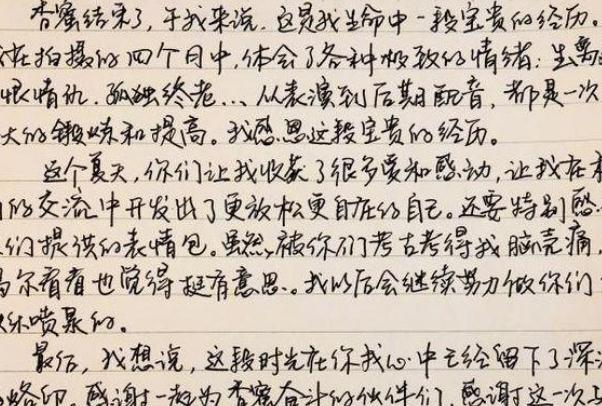 香蜜结束了,于我来说,这是我生命中一段宝贵的经历。
在拍摄的四个月中,体会了各种极致的情绪:生离
恨情仇、孤独终老...从表演到后期配音,都是一次
大的锻炼和提高。我感恩这段宝贵的经历。
这个夏天,你们让我收获了很多爱和感动,让我在
的交流中开发出了更放松更自在的自己。还要特别感
们提供的表情包。虽然被你们考古考得我脑壳痛,
尔看看也觉得挺有意思。我以后会继续努力做你们
喷泉的。
最后,我想说,这段时光在你我心中已经留下了深
烙印。感谢一起为香蜜奋斗的伙伴们,感谢这一次